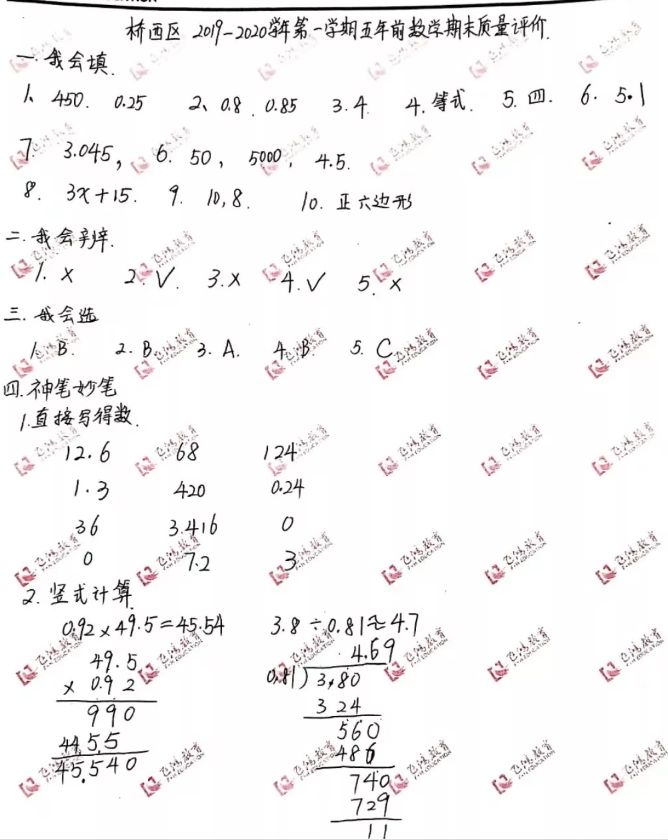 桥西区 2019-2020学年第一学期五年前数学期末质量评价.
一.我会填.
1、450. 0.25 2、0.8. 0.85 3.4. 4.等式. 5.四. 6. 5.1
7. 3.045, 6. 50, 5000, 4.5.
8. 3x+15. 9. 10,8. 10. 正六边形
二.我会辨.
1. × 2. √. 3.× 4.√ 5. ×
三.我会选
1. B. 2. B. 3. A. 4. B. 5. C
四.神笔妙笔
1.直接写得数.
12.6 68 124
1.3 420 0.24
36 3.416 0
0 7.2 3
2.竖式计算
0.92×49.5=45.54 3.8÷0.81≈4.7
49.5 4.69
× 0.92 0.81)3.80
990 324
4455 560
45.540 486
740
729
11
飞鸿教育
FH EDUCATION